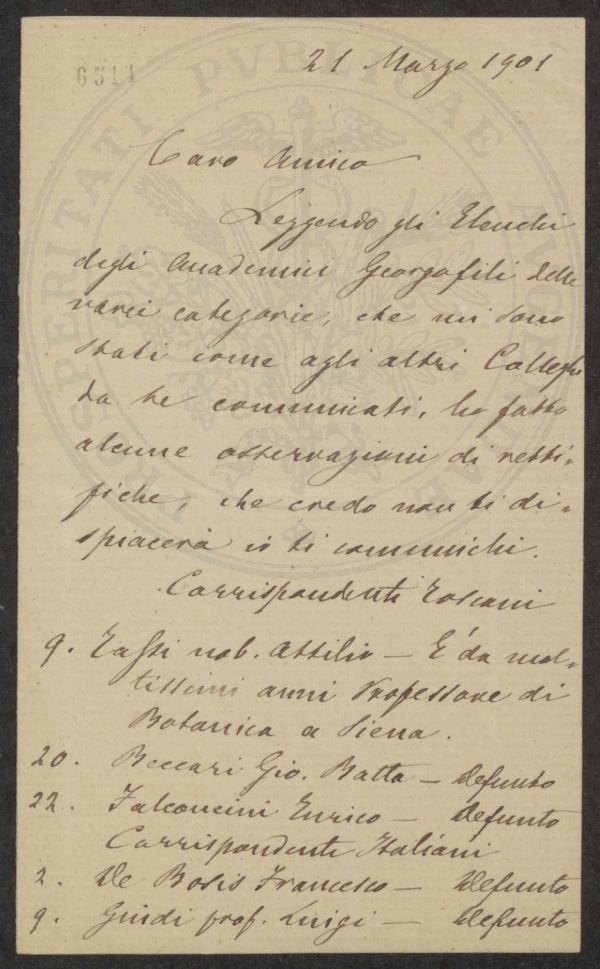 6511
21 Marzo 1901
Caro Amico
Leggendo gli Elenchi
degli Accademici Georgofili delle
varie categorie, che mi sono
stati come agli altri Colleghi
da te comunicati, ho fatto
alcune osservazioni di retti-
fiche, che credo non ti di-
spiacerà io ti comunichi.
Corrispondenti Toscani
9. Tassi nob. Attilio — È da mol-
tissimi anni Professore di
Botanica a Siena.
20. Beccari Gio. Batta — defunto
22. Falconcini Enrico — defunto
Corrispondenti Italiani
2. De Bosis Francesco — defunto
9. Guidi prof. Luigi — defunto
PROSPERITATI PVBLICAE AVGENDAE